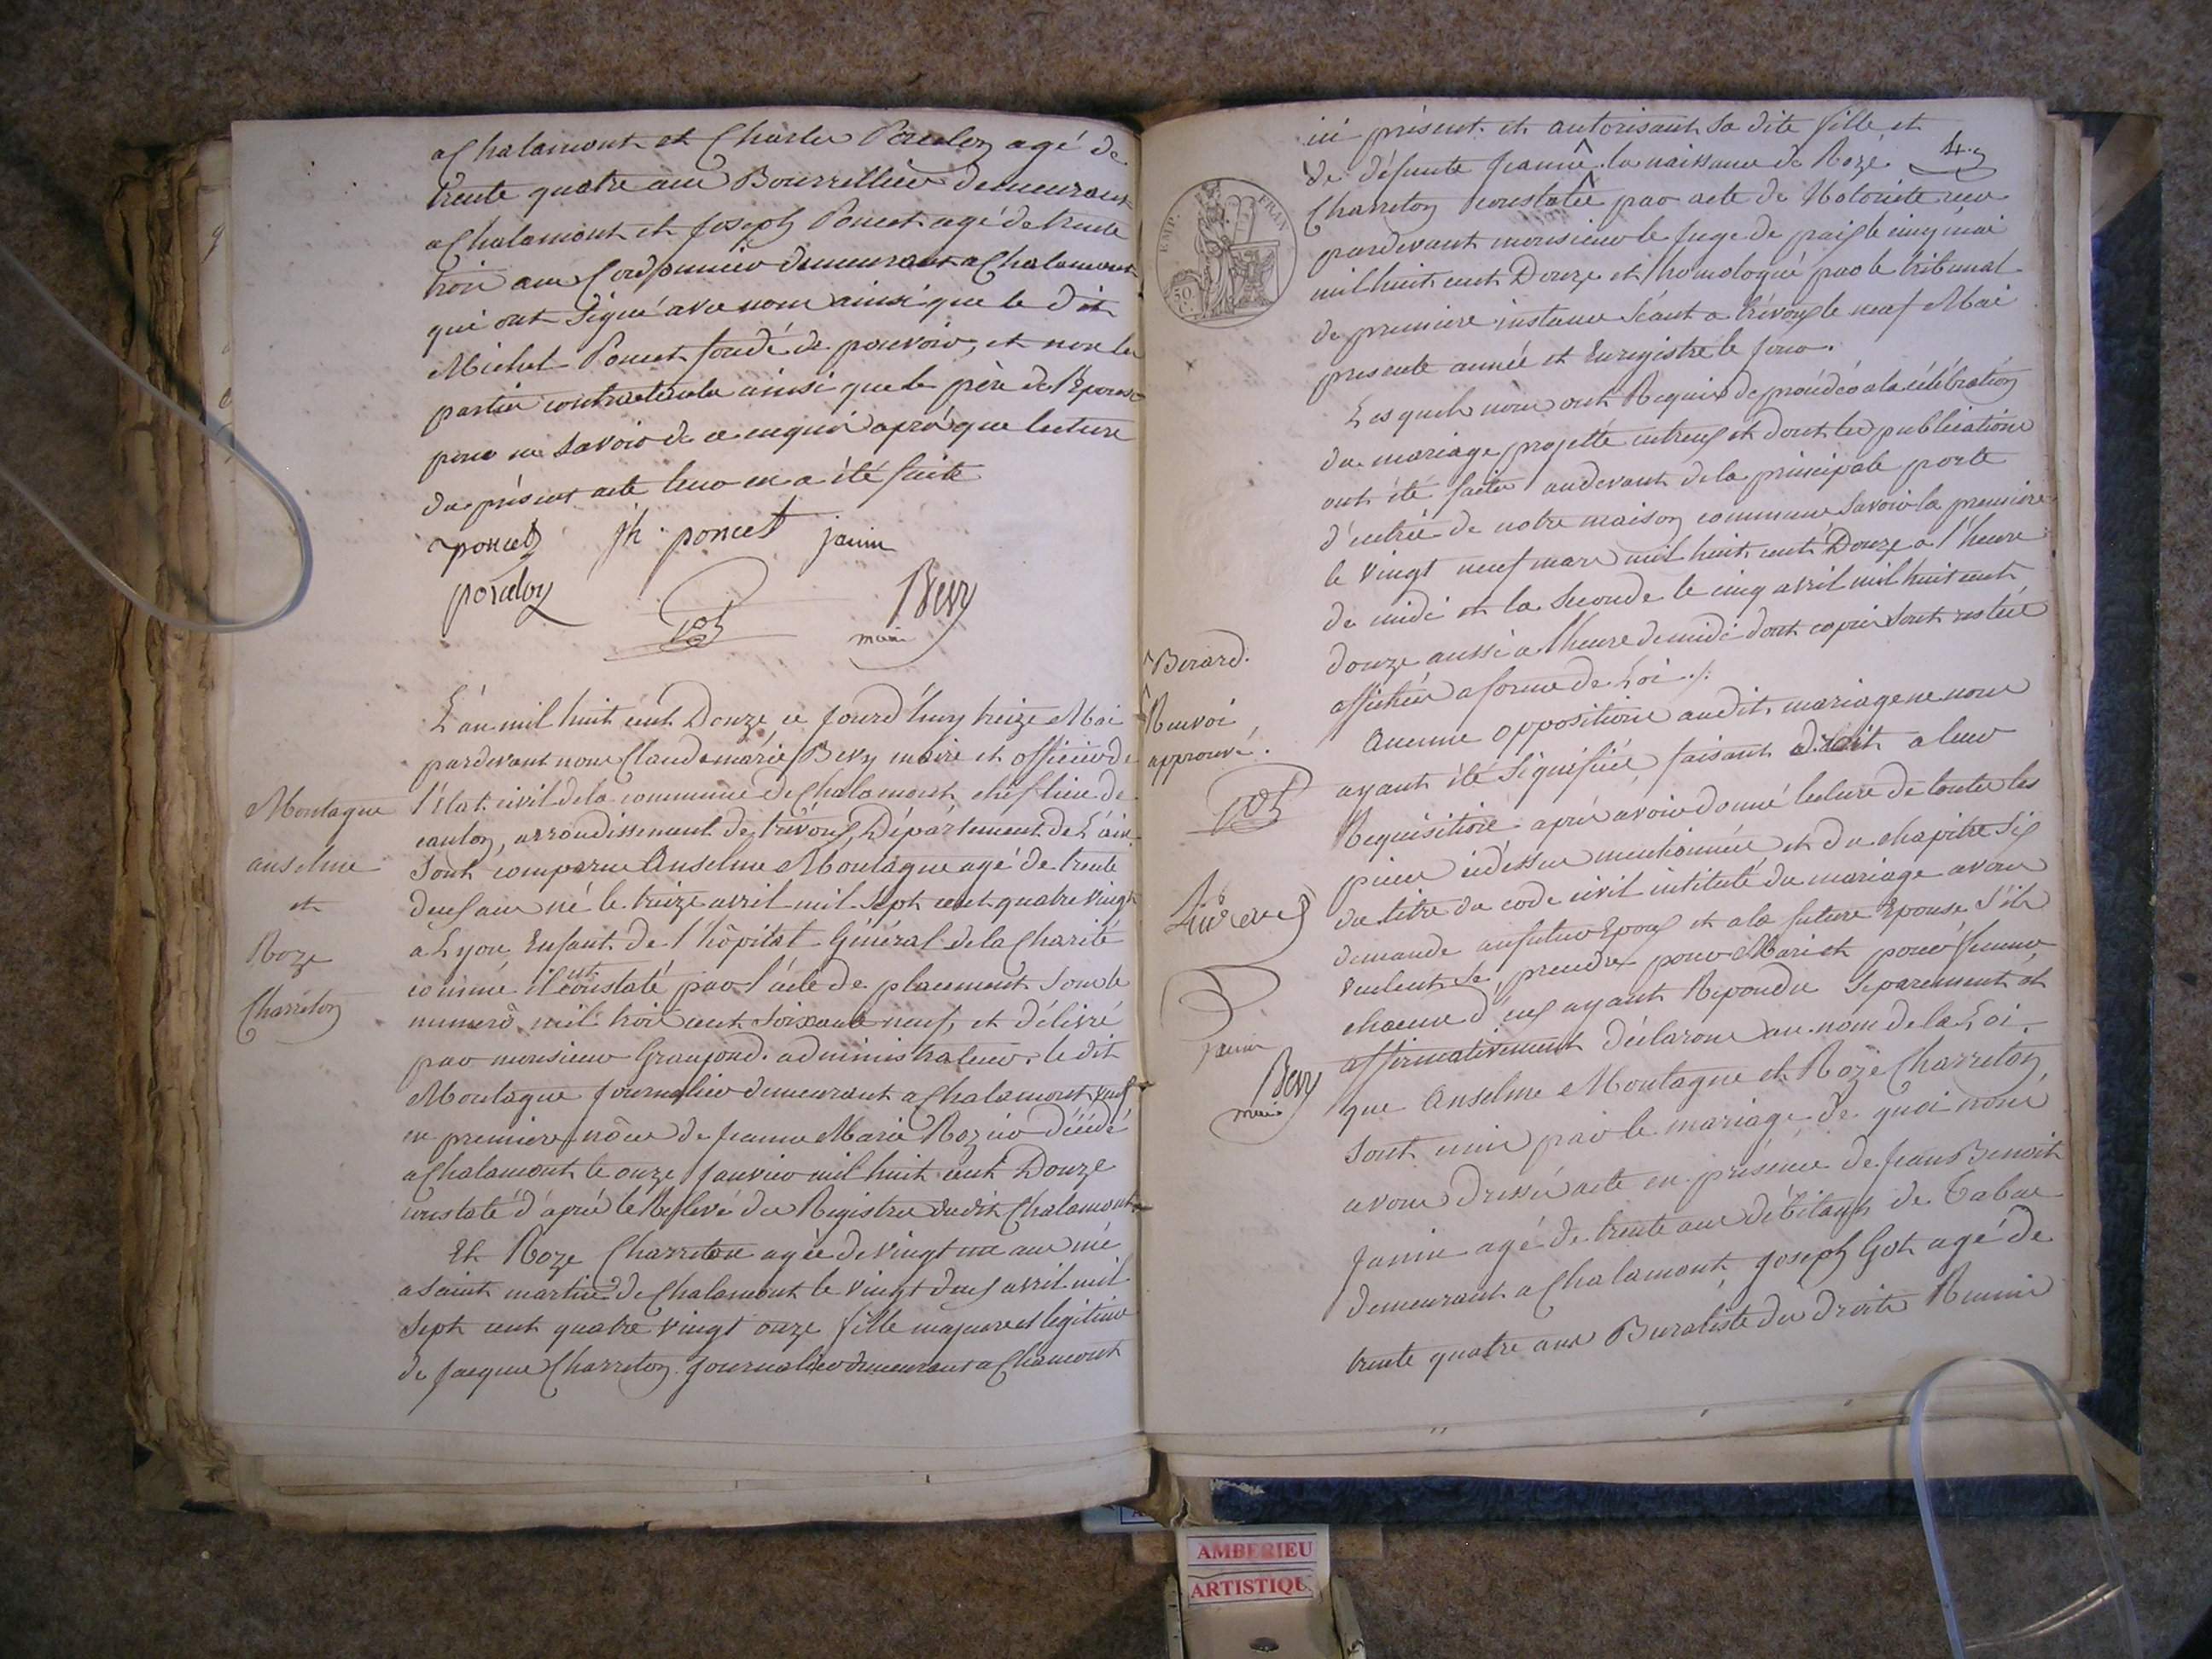 a Chalamont et Charles Porcelon agé de
trente quatre ans Bourrellier demeurant
a Chalamont et Joseph Poncet agé de trente
trois ans Cordonnier demeurant a Chalamont
qui ont signé avec nous ainsi que le dit
Michel Poncet fondé de pouvoir, et non les
parties contractantes ainsi que le père de l'Epouse
pour ne savoir de ce enquis après que lecture
du présent acte leur en a été faite
poncet jh poncet janin
porcelon Bevy
maire
L'an mil huit cent Douze, ce jourd'huy treize Mai
pardevant nous Claude marie Bevy maire et officier de
l'état civil de la commune de Chalamont, chef lieu de
canton, arrondissement de trévoux, Département de L'ain
Sont comparus Anselme Montagne agé de trente
deux ans né le treize avril mil sept cent quatre vingt
a Lyon Enfant de l'hôpital Général de la Charité
comme il est constaté par l'acte de placement sous le
numero mil trois cent soixante neuf, et délivré
par monsieur administrateur. le dit
Montagne journalier demeurant a Chalamont veuf
en premiere nôces de Jeanne Marie Rozier décédé
a Chalamont le onze janvier mil huit cent Douze
constaté d'après le Relevé des Registres dudit Chalamont
Et Roze Charreton agée de vingt un ans né
a saint martin de Chalamont le vingt deux avril mil
sept cent quatre vingt onze fille majeure et legitime
de Jacques Charreton journalier demeurant a Chamont
Montagne
anselme
et
Roze
Charreton
ici présent et autorisant sa dite fille et
de défunte Jeanne la naissance de Roze 4.
Charreton constatée par acte de Notoriété reçu
pardevant monsieur le juge de paix le cinq mai
mil huit cent Douze et homologué par le tribunal
de premiere instance séant a trévoux le neuf Mai
presente année et Enregistré le jour.
Lesquels nous ont Requis de procéder a la célébration
du mariage projetté entreux et dont les publications
ont été faites audevant de la principale porte
d'entrée de notre maison commune savoir la premiere
le vingt neuf mars mil huit cent Douze a l'heure
de midi et la seconde le cinq avril mil huit cent
douze aussi a l'heure de midi dont copies sont restées
affichées a forme de Loi ./.
Aucune oppositions audit mariage ne nous
ayant été signifiée, faisant droit a leur
Requisitions après avoir donné lecture de toutes les
pieces cidessus mentionnées et du chapitre six
du titre du code civil intitulé du mariage avons
demandé au futur Epoux et a la future Epouse s'ils
veulent se prendre pour Mari et pour femme,
chacun d'eux ayant Repondu séparement et
affirmativement déclarons au nom de la Loi
que Anselme Montagne et Roze Charreton
sont unis par le mariage, de quoi nous
avons dressé acte en présence de Jean Benoit
Janin agé de trente ans débitant de Tabac
demeurant a Chalamont, Joseph Got agé de
trente quatre ans Buraliste des droits Reunis
EMP. FRAN
50 C.
Berard.
Renvoi
approuvé.
janin
Bevy
maire
AMBERIEU
ARTISTIQU